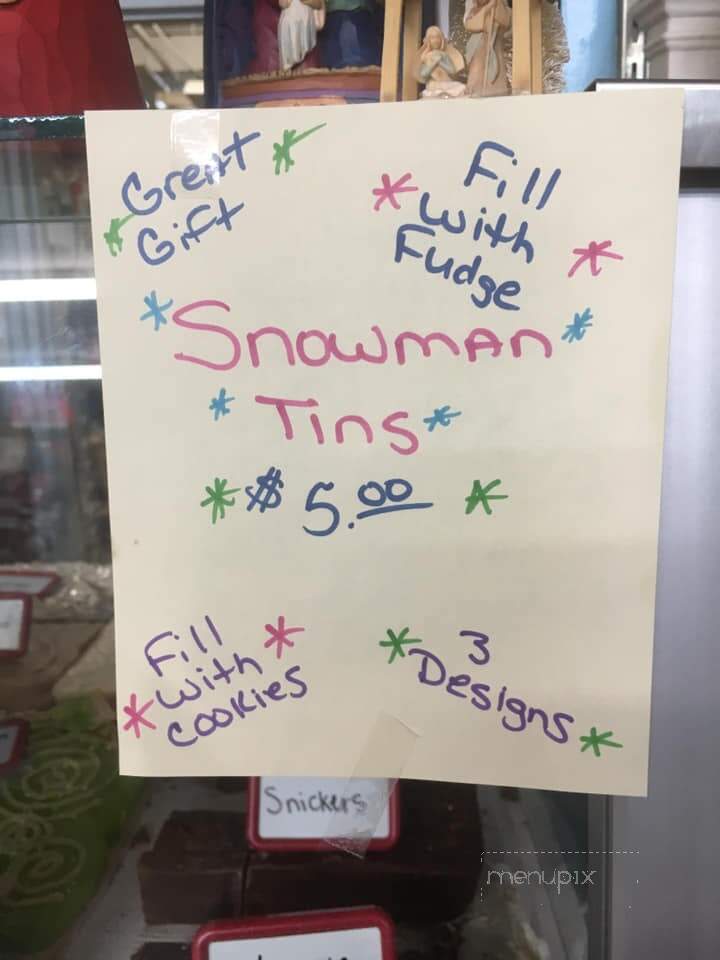 Great
Gift
Fill
with
Fudge
Snowman
Tins
$ 5.00
Fill
with
cookies
3
Designs
Snickers
menupix